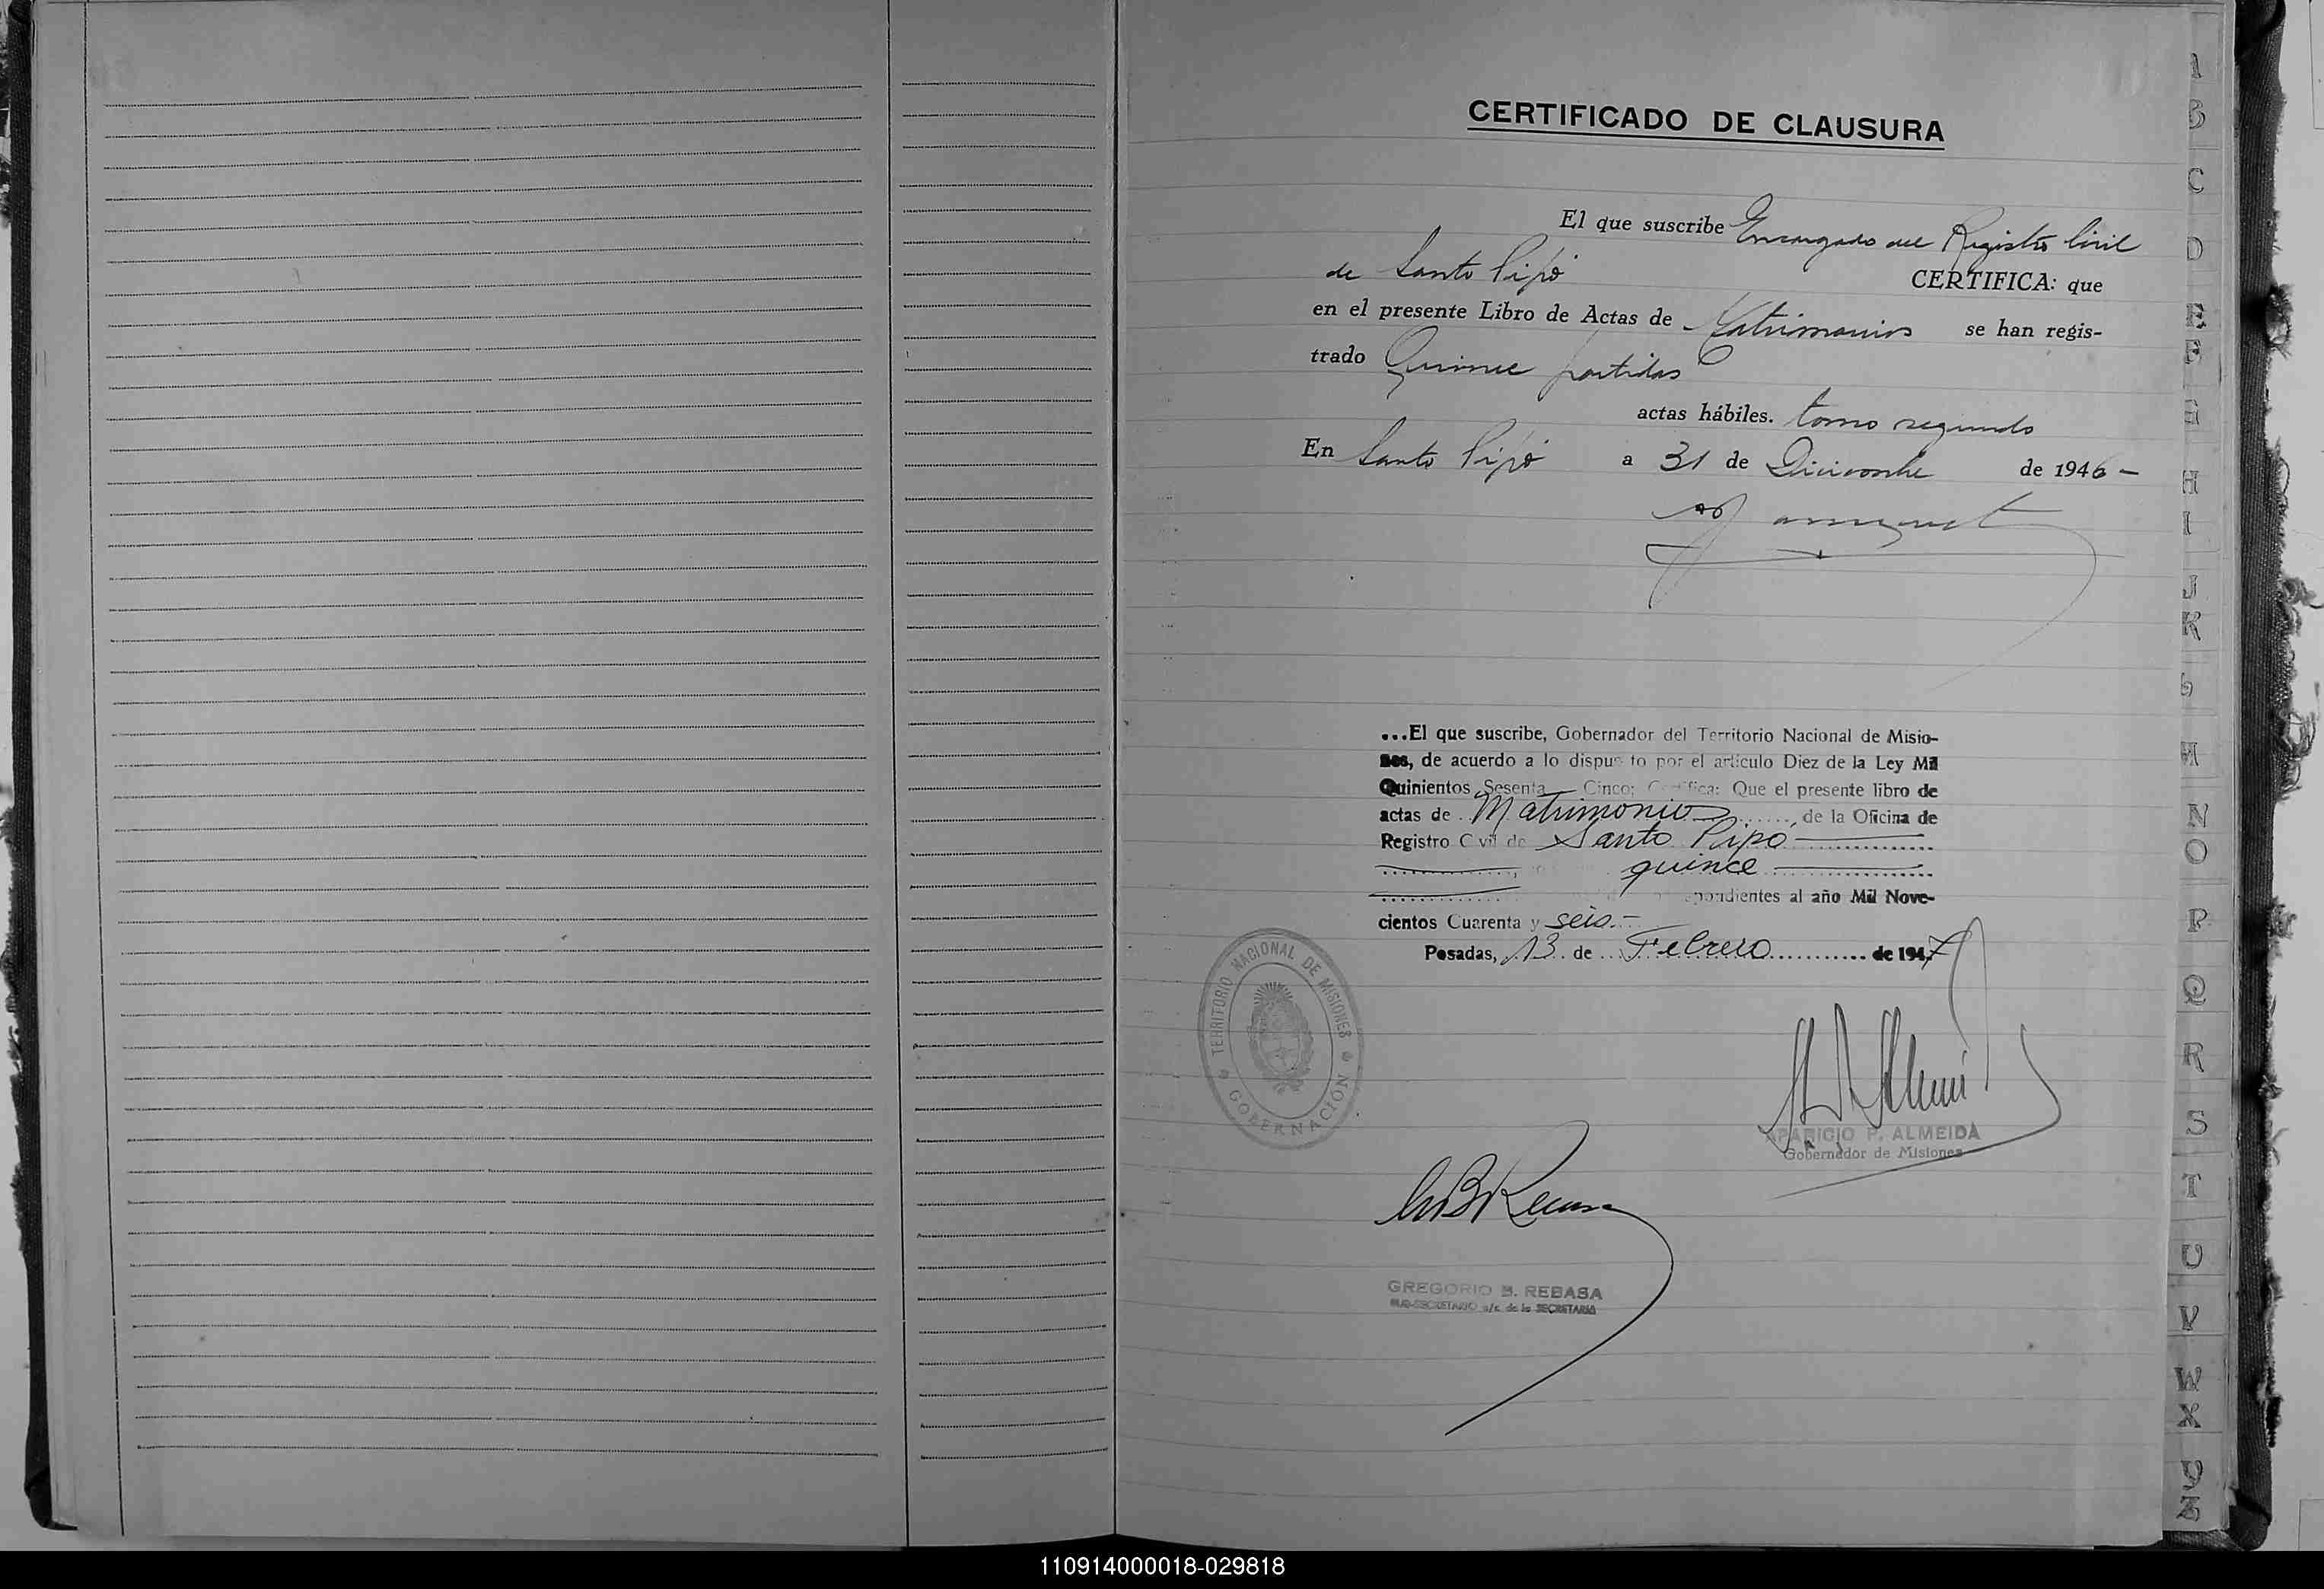 CERTIFICADO DE CLAUSURA
El que suscribe Encargado del Registro Civil
de Santo Pipó CERTIFICA: que
en el presente Libro de Actas de Matrimonios se han regis-
trado Quince partidas
actas hábiles. tomo segundo
En Santo Pipó a 31 de Diciembre de 1946 -
...El que suscribe, Gobernador del Territorio Nacional de Misio-
nes, de acuerdo a lo dispuesto por el artículo Diez de la Ley Mil
Quinientos Sesenta Cinco; Certifica: Que el presente libro de
actas de Matrimonios de la Oficina de
Registro Civil de Santo Pipó
quince
pondientes al año Mil Nove-
cientos Cuarenta y seis.-
Posadas, 13 de Febrero de 1947
TERRITORIO NACIONAL DE MISIONES
GOBERNACIÓN
APARICIO P. ALMEIDA
Gobernador de Misiones
GREGORIO B. REBASA
SUB-SECRETARIO a/c. de la SECRETARIA
A
B
C
D
E
F
G
H
I
J
K
L
M
N
O
P
Q
R
S
T
U
V
W
X
Y
Z
110914000018-029818